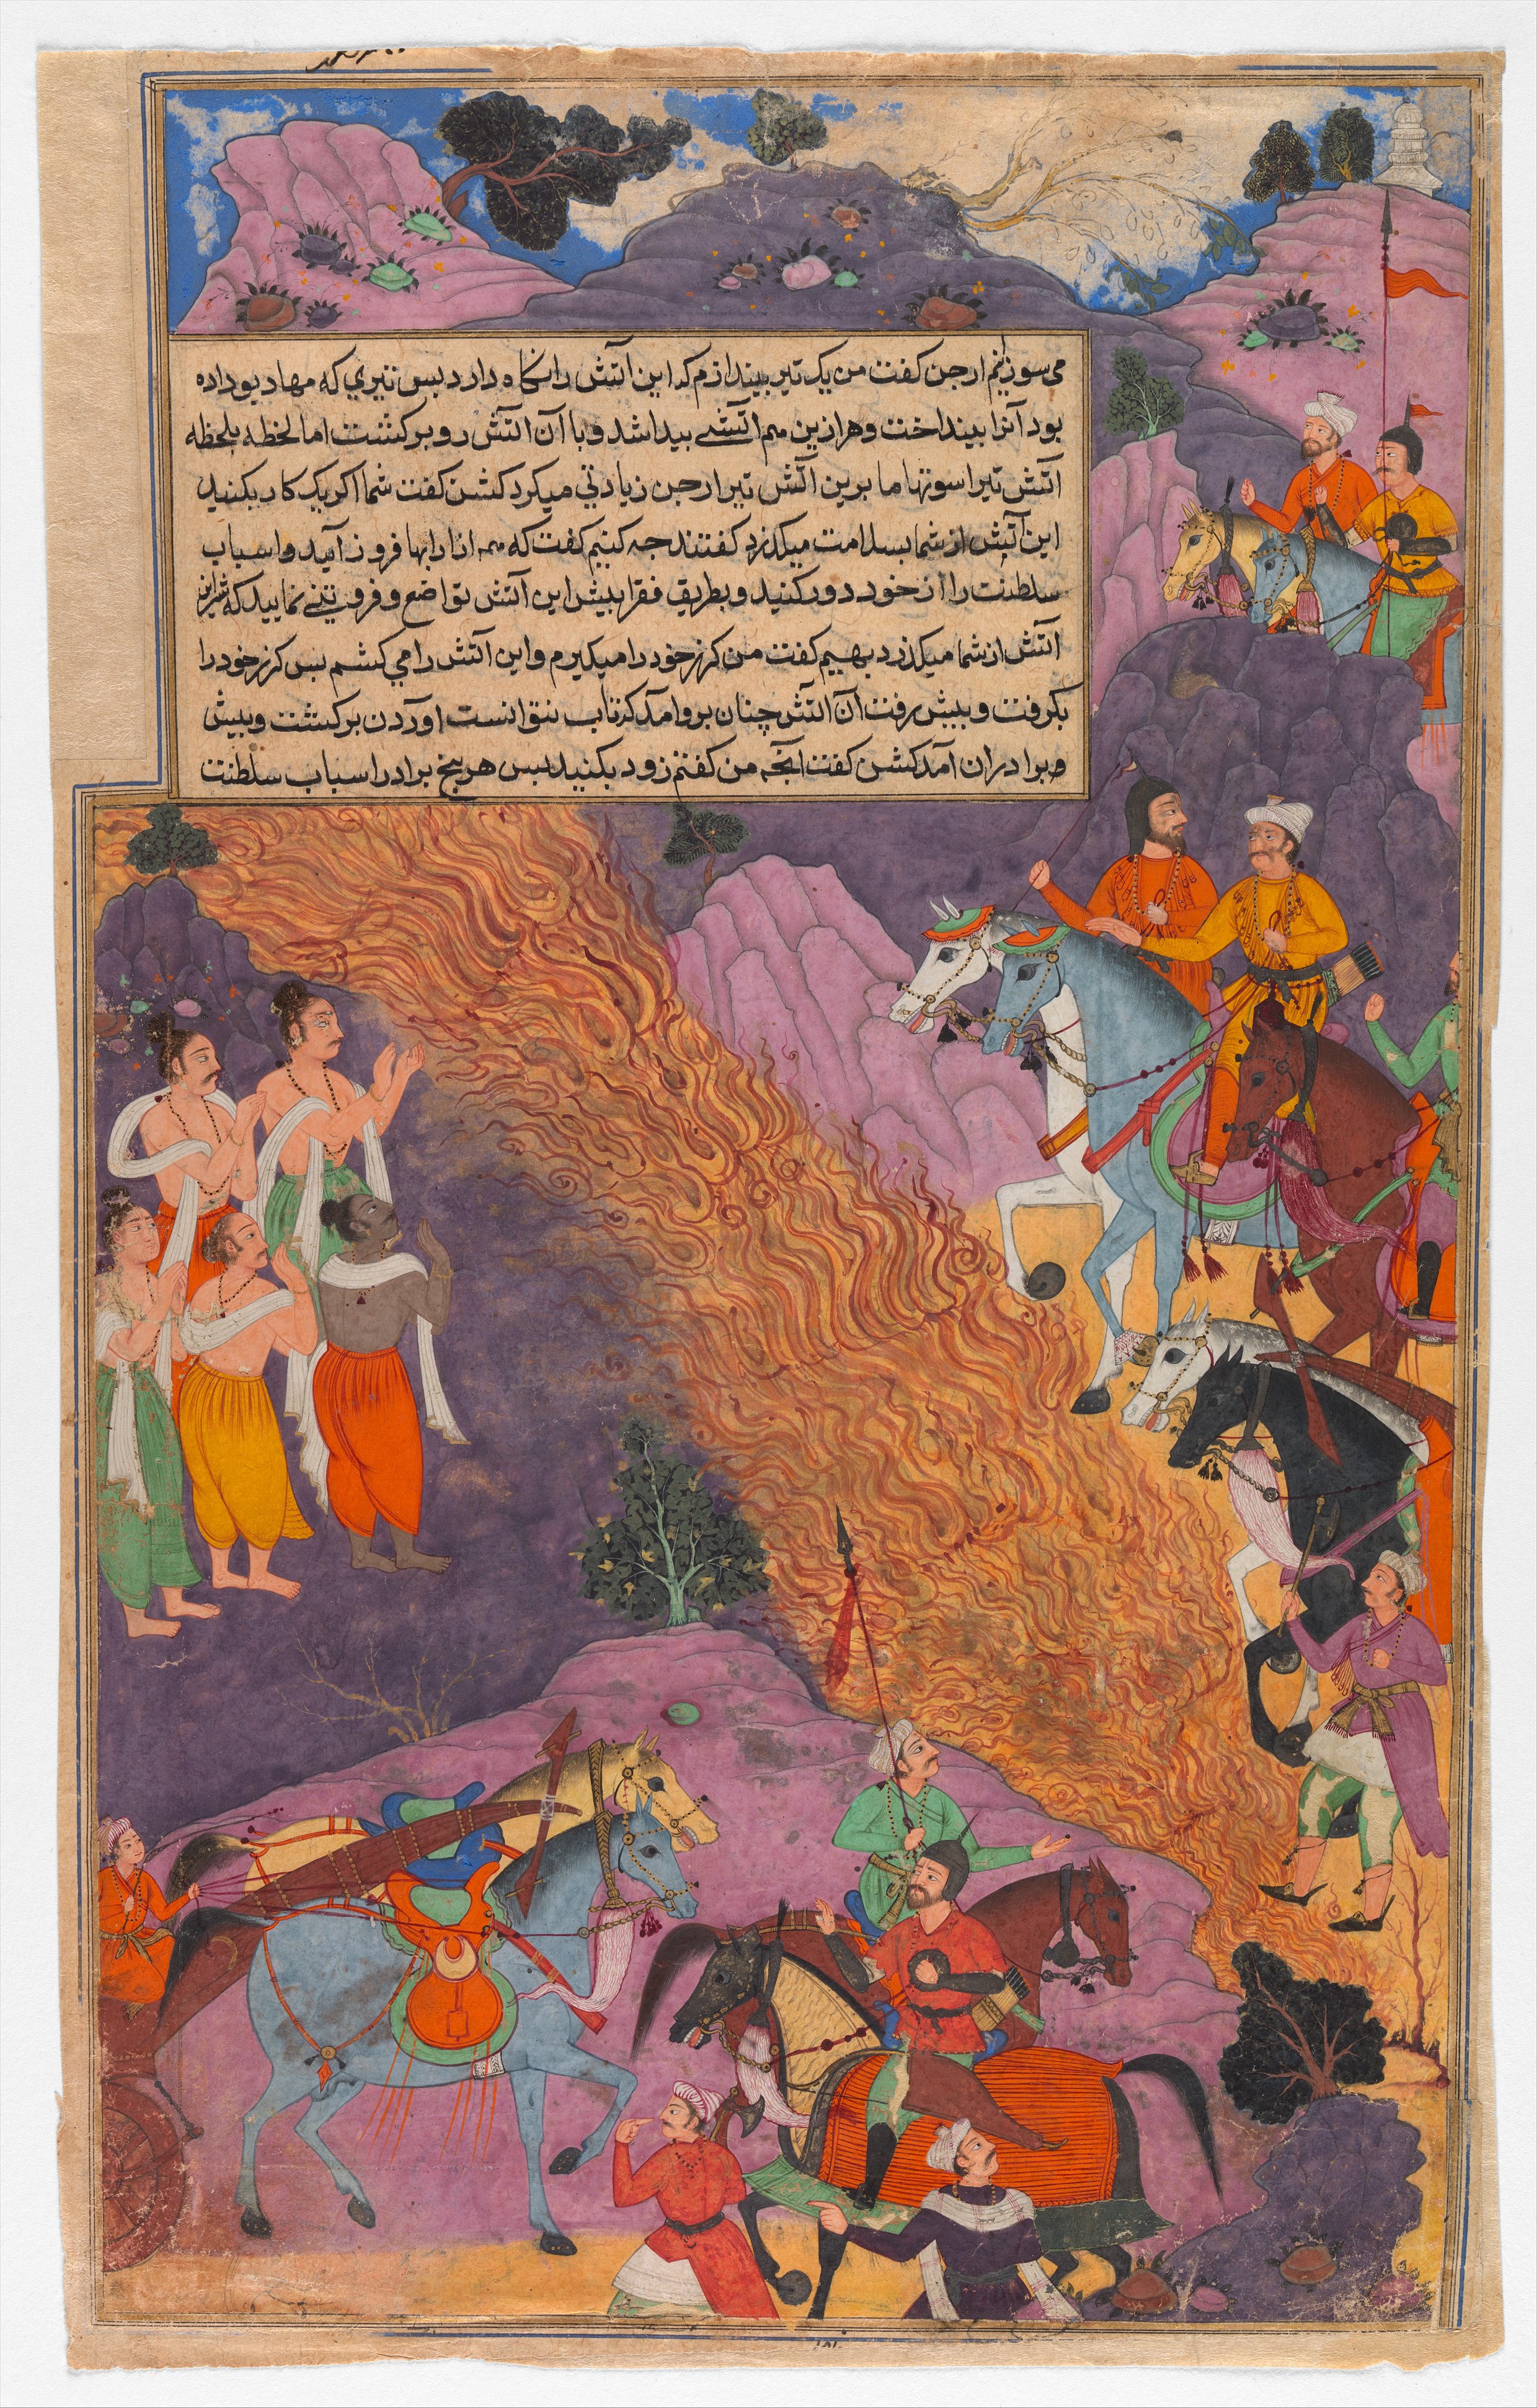 می سوزانم ارجن کفت من یک تیر بیندازم که این آتش را نکاه دارد بس تیری که مهادیو داده
بود آنرا بینداخت وهر ازین هم آتشی بیدا شد و با آن آتش روبرکشت اما لحظه بلحظه
آتش تیر اسوتهاما برین آتش تیر ارجن زیادتی میکرد کشن کفت شما اکر یک کار بکنید
این آتش از شما بسلامت میکذرد کفتند جه کنیم کفت که همه از ارابها فرود آیید و اسباب
سلطنت را از خود دور کنید و بطریق فقرا بیش این آتش تواضع و فروتنی نمایید که شر این
آتش از شما میکذرد بهیم کفت من کرز خود را میکیرم و این آتش را می کشم بس کرز خود را
بکرفت و بیش رفت آن آتش چنان برو آمد که تاب نتوانست آوردن برکشت و بیش
برادران آمد کشن کفت آنچه من کفتم زود بکنید بس هر پنج برادر اسباب سلطنت